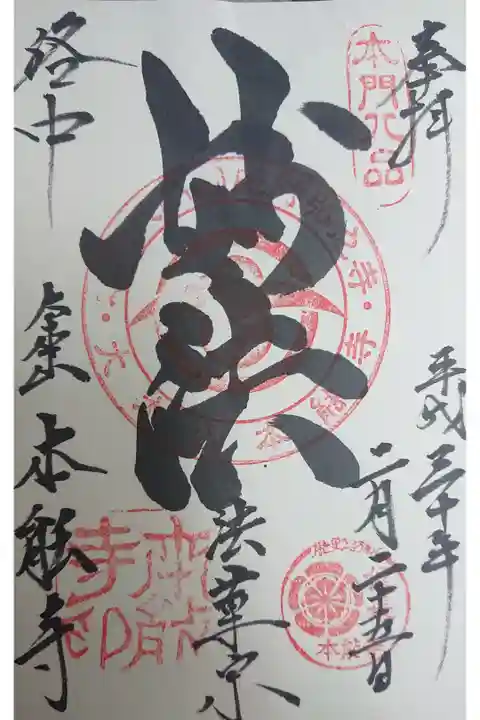 奉拝
本門八品
平成三十年
二月二十五日
妙法
法華宗
洛中
大本山
本能寺
本能寺印
本能